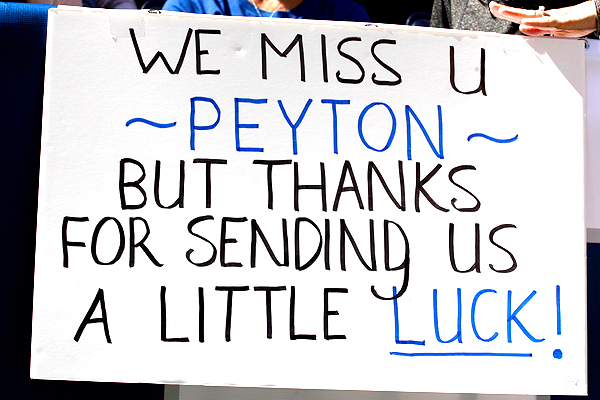 WE MISS U
~PEYTON~
BUT THANKS
FOR SENDING US
A LITTLE LUCK!